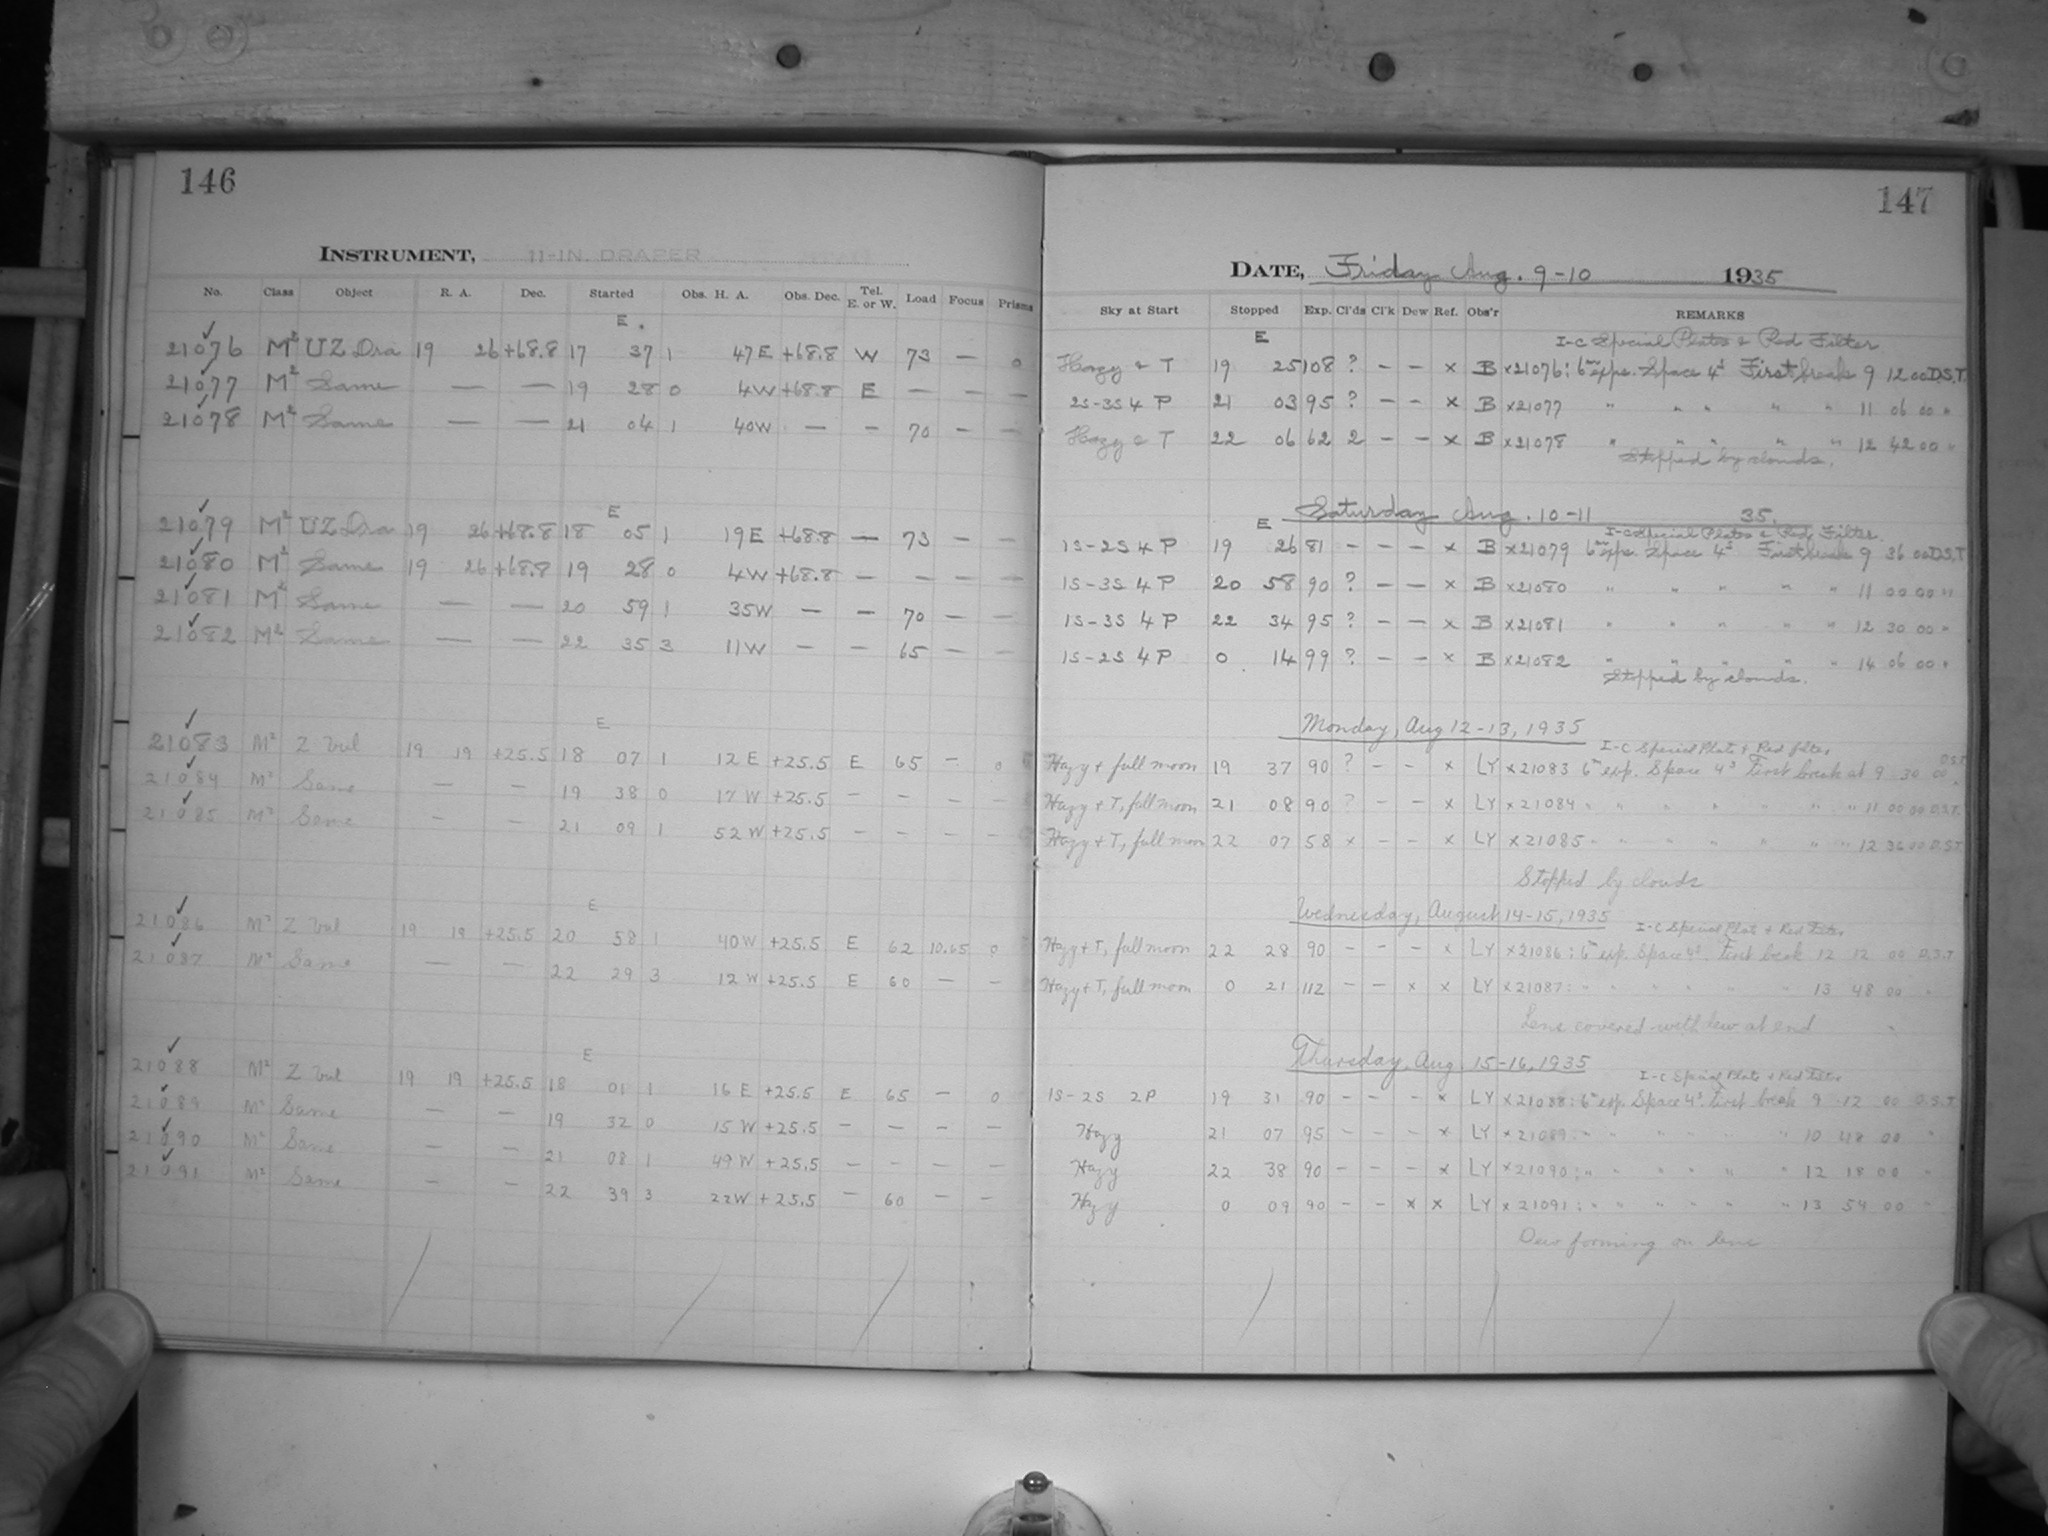 146
INSTRUMENT, 11-IN. DRAPER
No. Class Object R. A. Dec. Started Obs. H. A. Obs. Dec. Tel. E. or W. Load Focus Prisms
E
21076 M² UZ Dra 19 26 +68.8 17 37 1 47 E +68.8 W 73 — 0
21077 M² Same — — 19 28 0 4 W +68.8 E — — —
21078 M² Same — — 21 04 1 40 W — — 70 — —
E
21079 M² UZ Dra 19 26 +68.8 18 05 1 19 E +68.8 — 73 — —
21080 M² Same 19 26 +68.8 19 28 0 4 W +68.8 — — — —
21081 M² Same — — 20 59 1 35 W — — 70 — —
21082 M² Same — — 22 35 3 11 W — — 65 — —
E
21083 M² Z Vul 19 19 +25.5 18 07 1 12 E +25.5 E 65 — 0
21084 M² Same — — 19 38 0 17 W +25.5 — — — —
21085 M² Same — — 21 09 1 52 W +25.5 — — — —
E
21086 M² Z Vul 19 19 +25.5 20 58 1 40 W +25.5 E 62 10.65 0
21087 M² Same — — 22 29 3 12 W +25.5 E 60 — —
E
21088 M² Z Vul 19 19 +25.5 18 01 1 16 E +25.5 E 65 — 0
21089 M² Same — — 19 32 0 15 W +25.5 — — — —
21090 M² Same — — 21 08 1 49 W +25.5 — — — —
21091 M² Same — — 22 39 3 22 W +25.5 — 60 — —
147
DATE, Friday Aug. 9-10 1935
Sky at Start Stopped Exp. Cl'ds Cl'k Dew Ref. Obs'r REMARKS
E I-C Special Plates & Red Filter
Hazy & T 19 25 108 ? — — x B x21076: 6ᵐ exps. Space 4ˢ First break 9 12 00 D.S.T.
2S-3S 4 P 21 03 95 ? — — x B x21077 " " " " " 11 06 00 "
Hazy & T 22 06 62 2 — — x B x21078 " " " " " 12 42 00 "
Stopped by clouds.
Saturday Aug. 10-11 35.
E I-C Special Plates & Red Filter
1S-2S 4 P 19 26 81 — — — x B x21079 6ᵐ exps. Space 4ˢ First break 9 36 00 D.S.T
1S-3S 4 P 20 58 90 ? — — x B x21080 " " " " " 11 00 00 "
1S-3S 4 P 22 34 95 ? — — x B x21081 " " " " " 12 30 00 "
1S-2S 4 P 0 14 99 ? — — x B x21082 " " " " " 14 06 00 "
Stopped by clouds.
Monday, Aug 12-13, 1935
I-C Special Plate + Red filter
Hazy + full moon 19 37 90 ? — — x LY x21083 6ᵐ exp. Space 4ˢ First break at 9 30 00 D.S.T.
Hazy + T, full moon 21 08 90 ? — — x LY x21084 " " " " " " " 11 00 00 D.S.T.
Hazy + T, full moon 22 07 58 x — — x LY x21085 " " " " " " " 12 36 00 D.S.T.
Stopped by clouds
Wednesday, August 14-15, 1935
I-C Special Plate + Red Filter
Hazy + T, full moon 22 28 90 — — — x LY x21086: 6ᵐ exp. Space 4ˢ. First break 12 12 00 D.S.T
Hazy + T, full moon 0 21 112 — — x x LY x21087: " " " " " " 13 48 00 "
Lens covered with dew at end
Thursday, Aug. 15-16, 1935
I-C Special Plate + Red Filter
1S-2S 2P 19 31 90 — — — x LY x21088: 6ᵐ exp. Space 4ˢ. First break 9 12 00 D.S.T.
Hazy 21 07 95 — — — x LY x21089: " " " " " " 10 48 00 "
Hazy 22 38 90 — — — x LY x21090: " " " " " " 12 18 00 "
Hazy 0 09 90 — — x x LY x21091: " " " " " " 13 54 00 "
Dew forming on lens